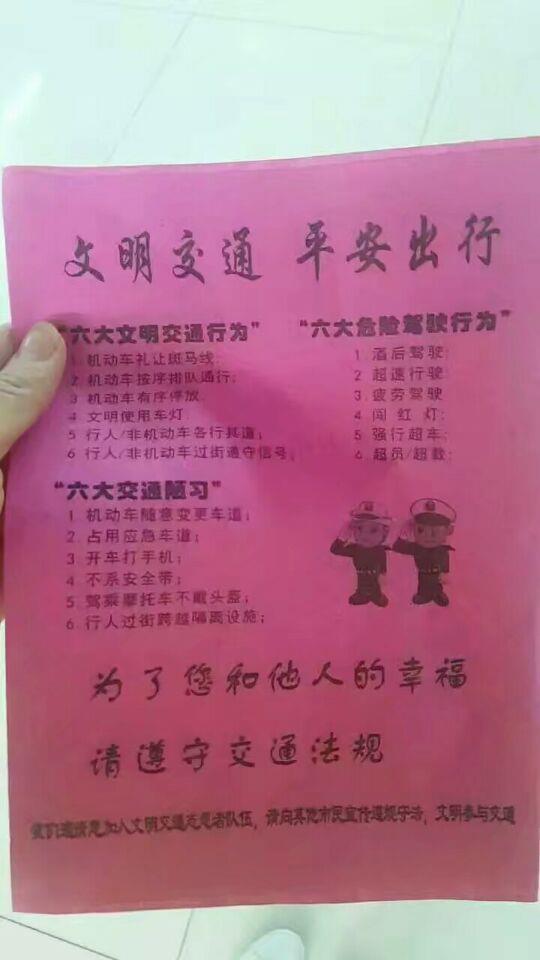 文明交通 平安出行
"六大文明交通行为"
1. 机动车礼让斑马线;
2 机动车按序排队通行;
3 机动车有序停放.
4 文明使用车灯.
5 行人/非机动车各行其道;
6 行人/非机动车过街遵守信号;
"六大危险驾驶行为"
1. 酒后驾驶:
2 超速行驶:
3. 疲劳驾驶
4. 闯红灯:
5. 强行超车:
6. 超员/超载:
"六大交通陋习"
1. 机动车随意变更车道;
2. 占用应急车道;
3. 开车打手机;
4. 不系安全带;
5. 驾乘摩托车不戴头盔;
6. 行人过街跨越隔离设施;
为了您和他人的幸福
请遵守交通法规
我们邀请您加入文明交通志愿者队伍，请向其他市民宣传遵规守法，文明参与交通